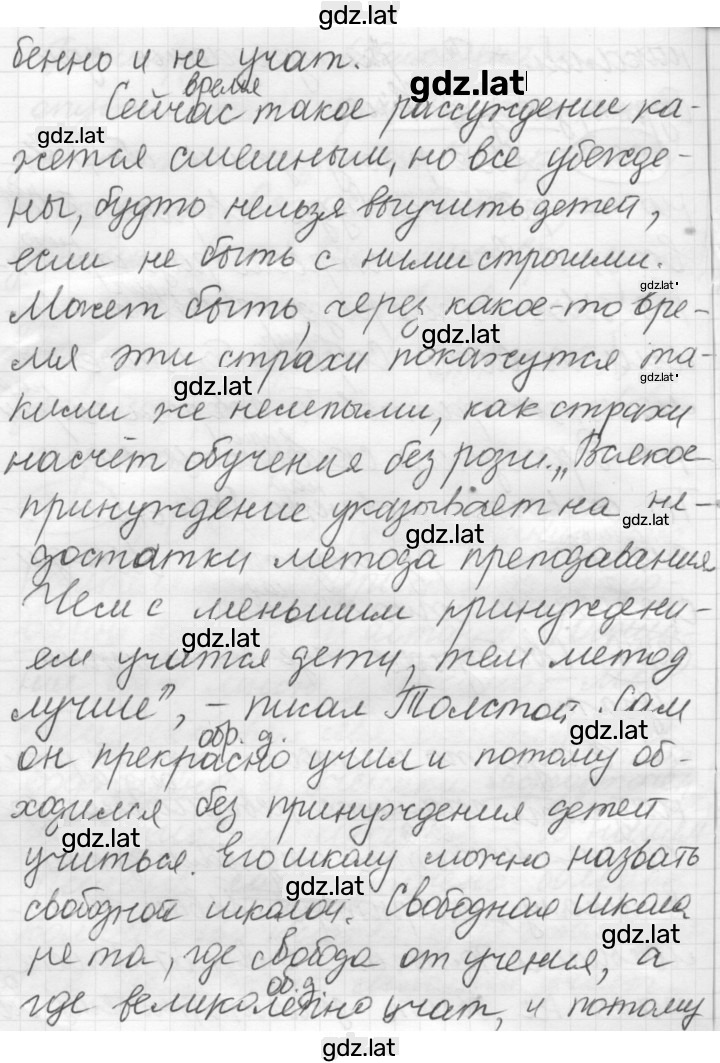 gdz.lat
бенно и не учат.
время
gdz.lat
Сейчас такое рассуждение ка-
gdz.lat
жется смешным, но все убежде-
ны, будто нельзя выучить детей,
если не быть с ними строгими.
gdz.lat
Может быть, через какое-то вре-
gdz.lat
мя эти страхи покажутся та-
gdz.lat gdz.lat
кими же нелепыми, как страхи
насчёт обучения без розги. „Всякое
принуждение указывает на не-
gdz.lat gdz.lat
достатки метода преподавания
Чем с меньшим принуждени-
gdz.lat
ем учатся дети, тем метод
лучше", - писал Толстой. Сам
gdz.lat
обр. д.
он прекрасно учил и потому об-
ходился без принуждения детей
gdz.lat
учиться. Его школу можно назвать
gdz.lat
свободной школой. Свободная школа
gdz.lat
не та, где свобода от учения, а
об. д.
где великолепно учат, и потому
gdz.lat